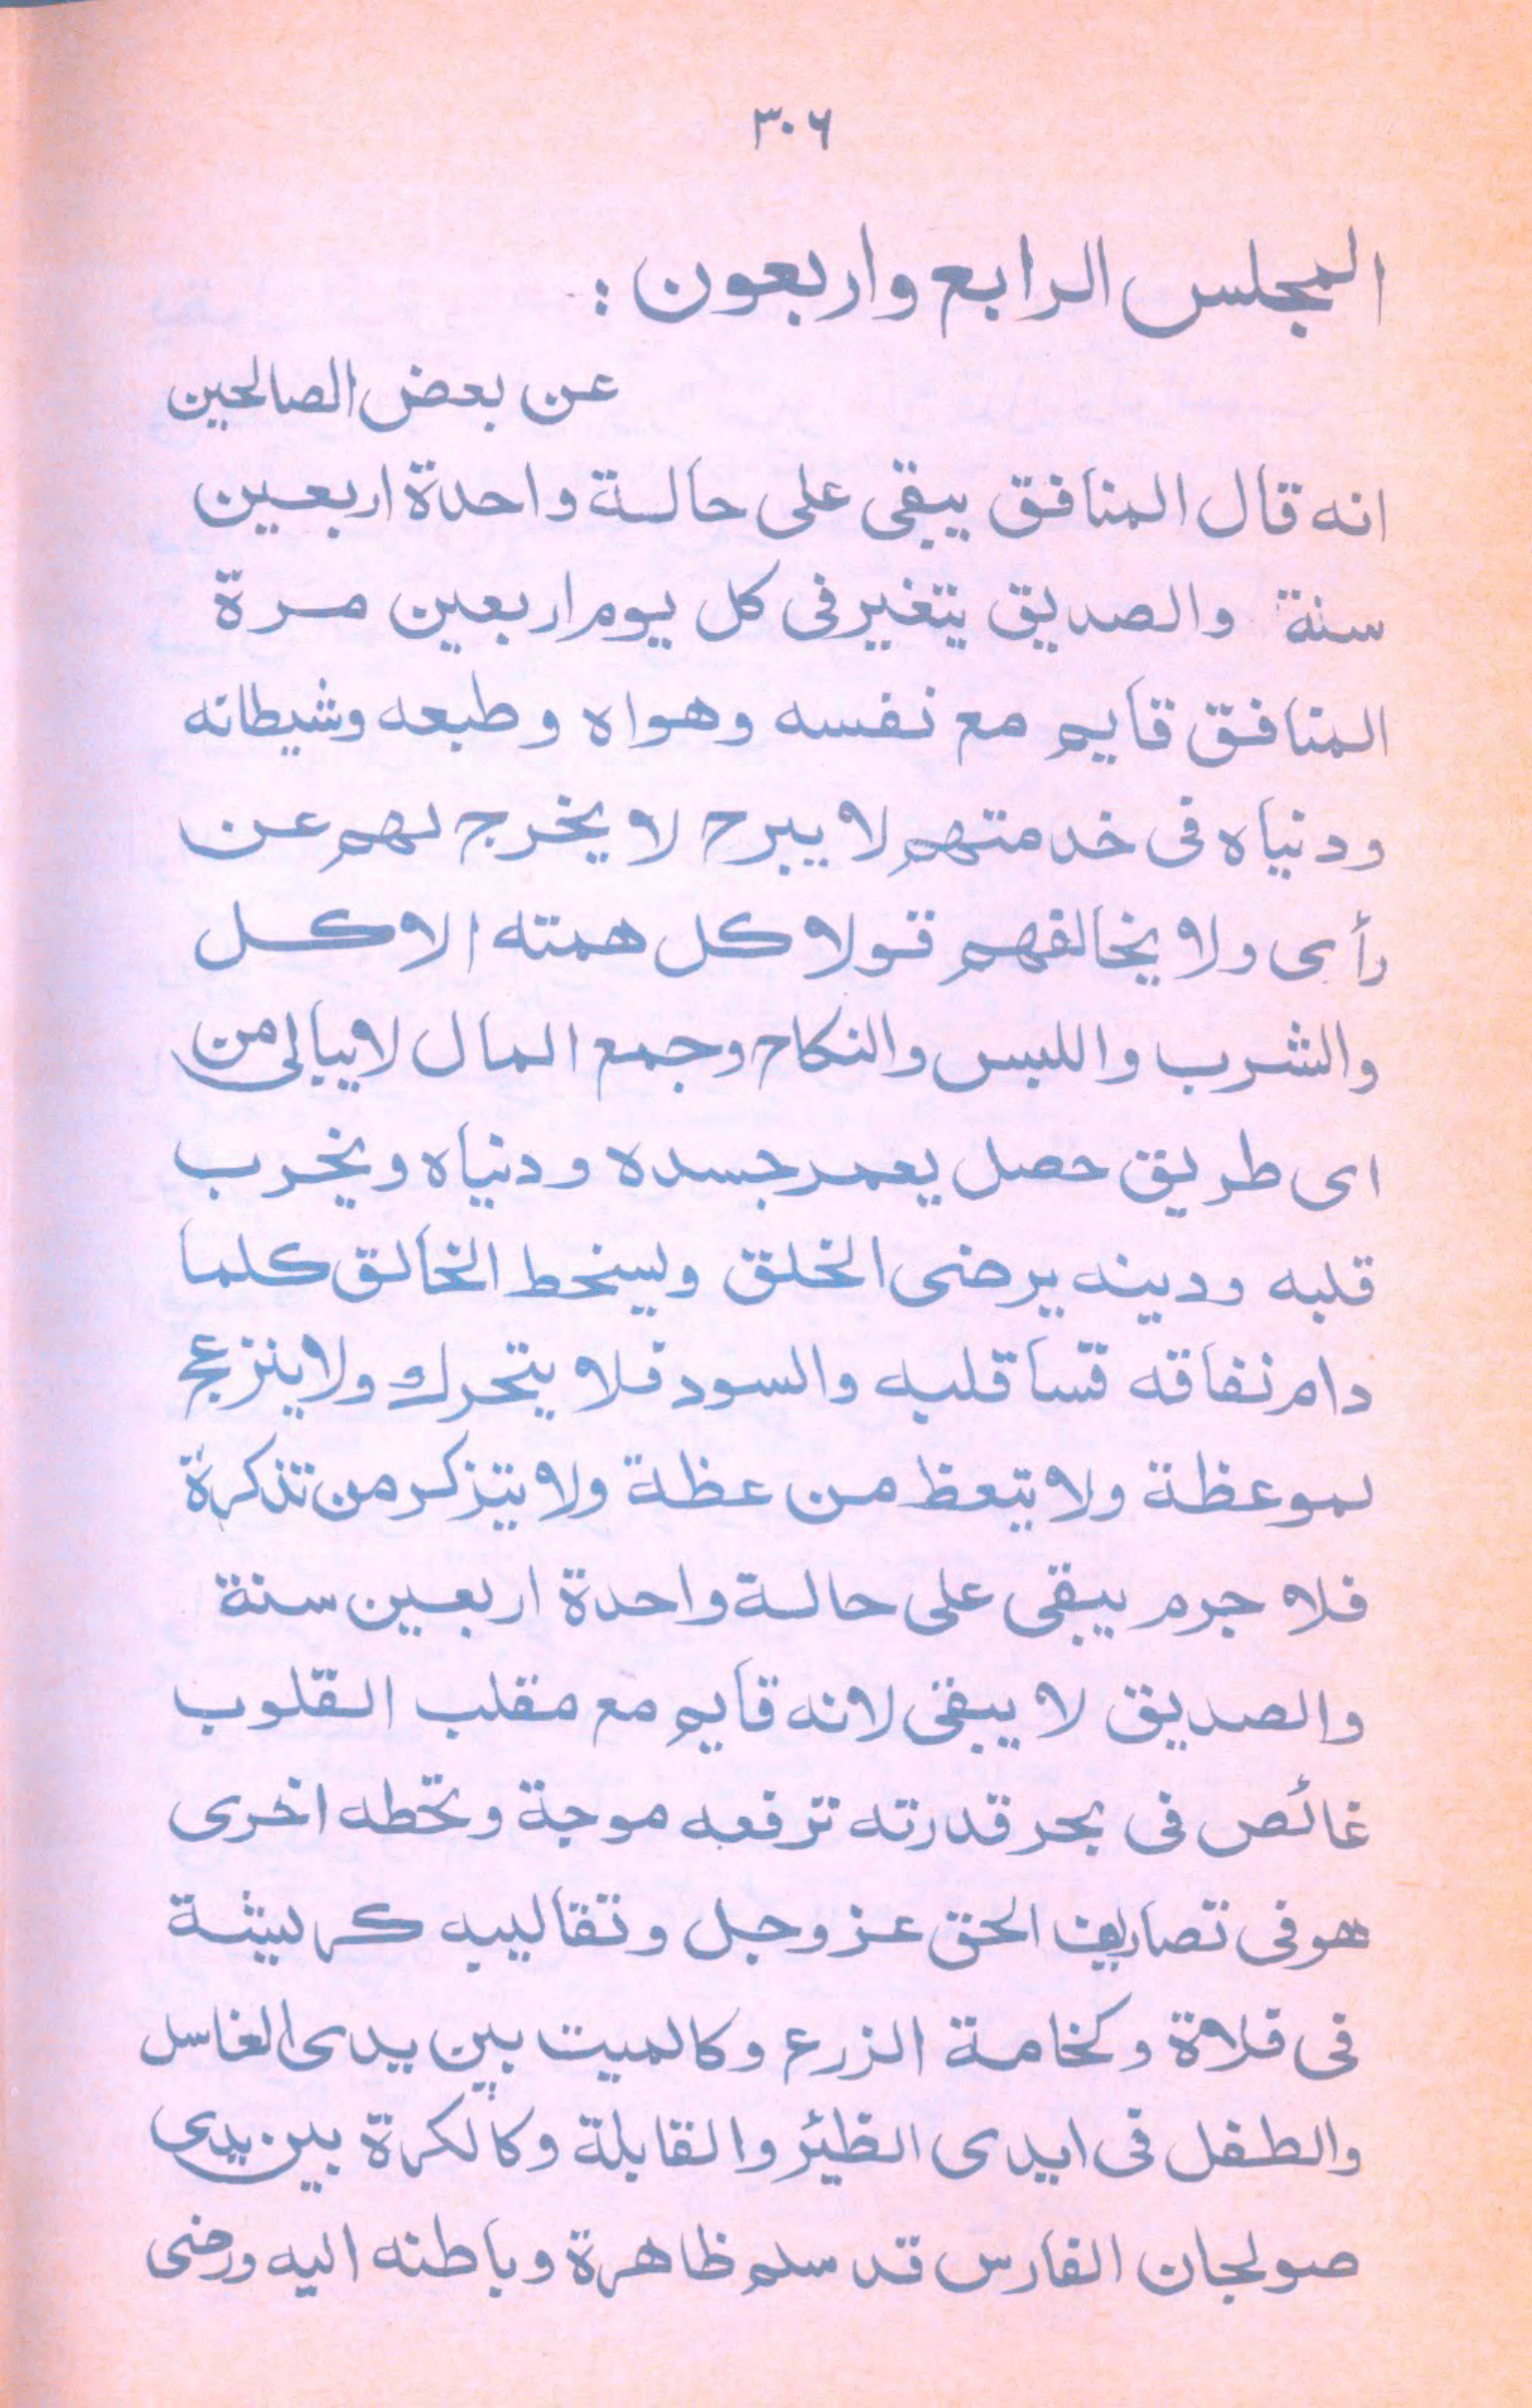 ٣٠٦
المجلس الرابع واربعون :
عن بعض الصالحين
انه قال المنافق يبقى على حالة واحدة اربعين
سنة والصديق يتغير فى كل يوم اربعين مرة
المنافق قايم مع نفسه وهواه وطبعه وشيطانه
ودنياه فى خدمتهم لا يبرح لا يخرج لهم عن
رأى ولا يخالفهم قولا كل همته الاكل
والشرب واللبس والنكاح وجمع المال لا يبالى من
اى طريق حصل يعمر جسده ودنياه ويخرب
قلبه ودينه يرضى الخلق ويسخط الخالق كلما
دام نفاقه قسا قلبه والسود فلا يتحرك ولا ينزعج
لموعظة ولا يتعظ من عظة ولا يتزكر من تذكرة
فلا جرم يبقى على حالة واحدة اربعين سنة
والصديق لا يبقى لانه قايم مع مقلب القلوب
غائص فى بحر قدرته ترفعه موجة وتحطه اخرى
هو فى تصاريف الحق عز وجل وتقاليبه كريشة
فى فلاة وكخامة الزرع وكالميت بين يدى الغاسل
والطفل فى ايدى الظئر والقابلة وكالكرة بين يدى
صولجان الفارس قد سلم ظاهرة وباطنه اليه ورضى